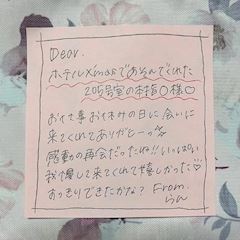 Dear.
ホテルXmasであそんでくれた
205号室の本指〇様♡
お仕事お休みの日に会いに
来てくれてありがとーっ☆
感動の再会だったね!!いっぱい
我慢して来てくれて嬉しかった♡
すっきりできたかな? From.
らん